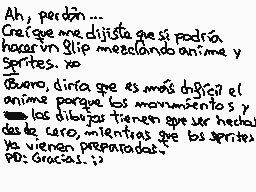 Ah, perdón...
Creí que me dijiste que si podría
hacer un flip mezclando anime y
sprites. xo
Bueno, diría que es más difícil el
anime porque los movimientos y
los dibujos tienen que ser hechos
desde cero, mientras que los sprites
ya vienen preparados.
PD: Gracias. :)